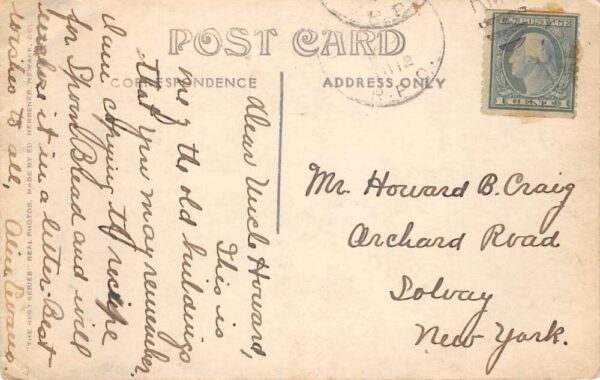 POST CARD
CORRESPONDENCE
ADDRESS ONLY
U.S. POSTAGE
1 CENT 1
R.P.O.
Dear Uncle Howard,
This is
one of the old buildings
that you may remember.
I am copying the recipe
for Spoon Bread and will
enclose it in a letter. Best
wishes to all,
Mr. Howard B. Craig
Orchard Road
Solvay
New York.
"THE BEST SERIES" REAL PHOTOS, MADE BY ED. HERBENER, NEWARK, DEL.